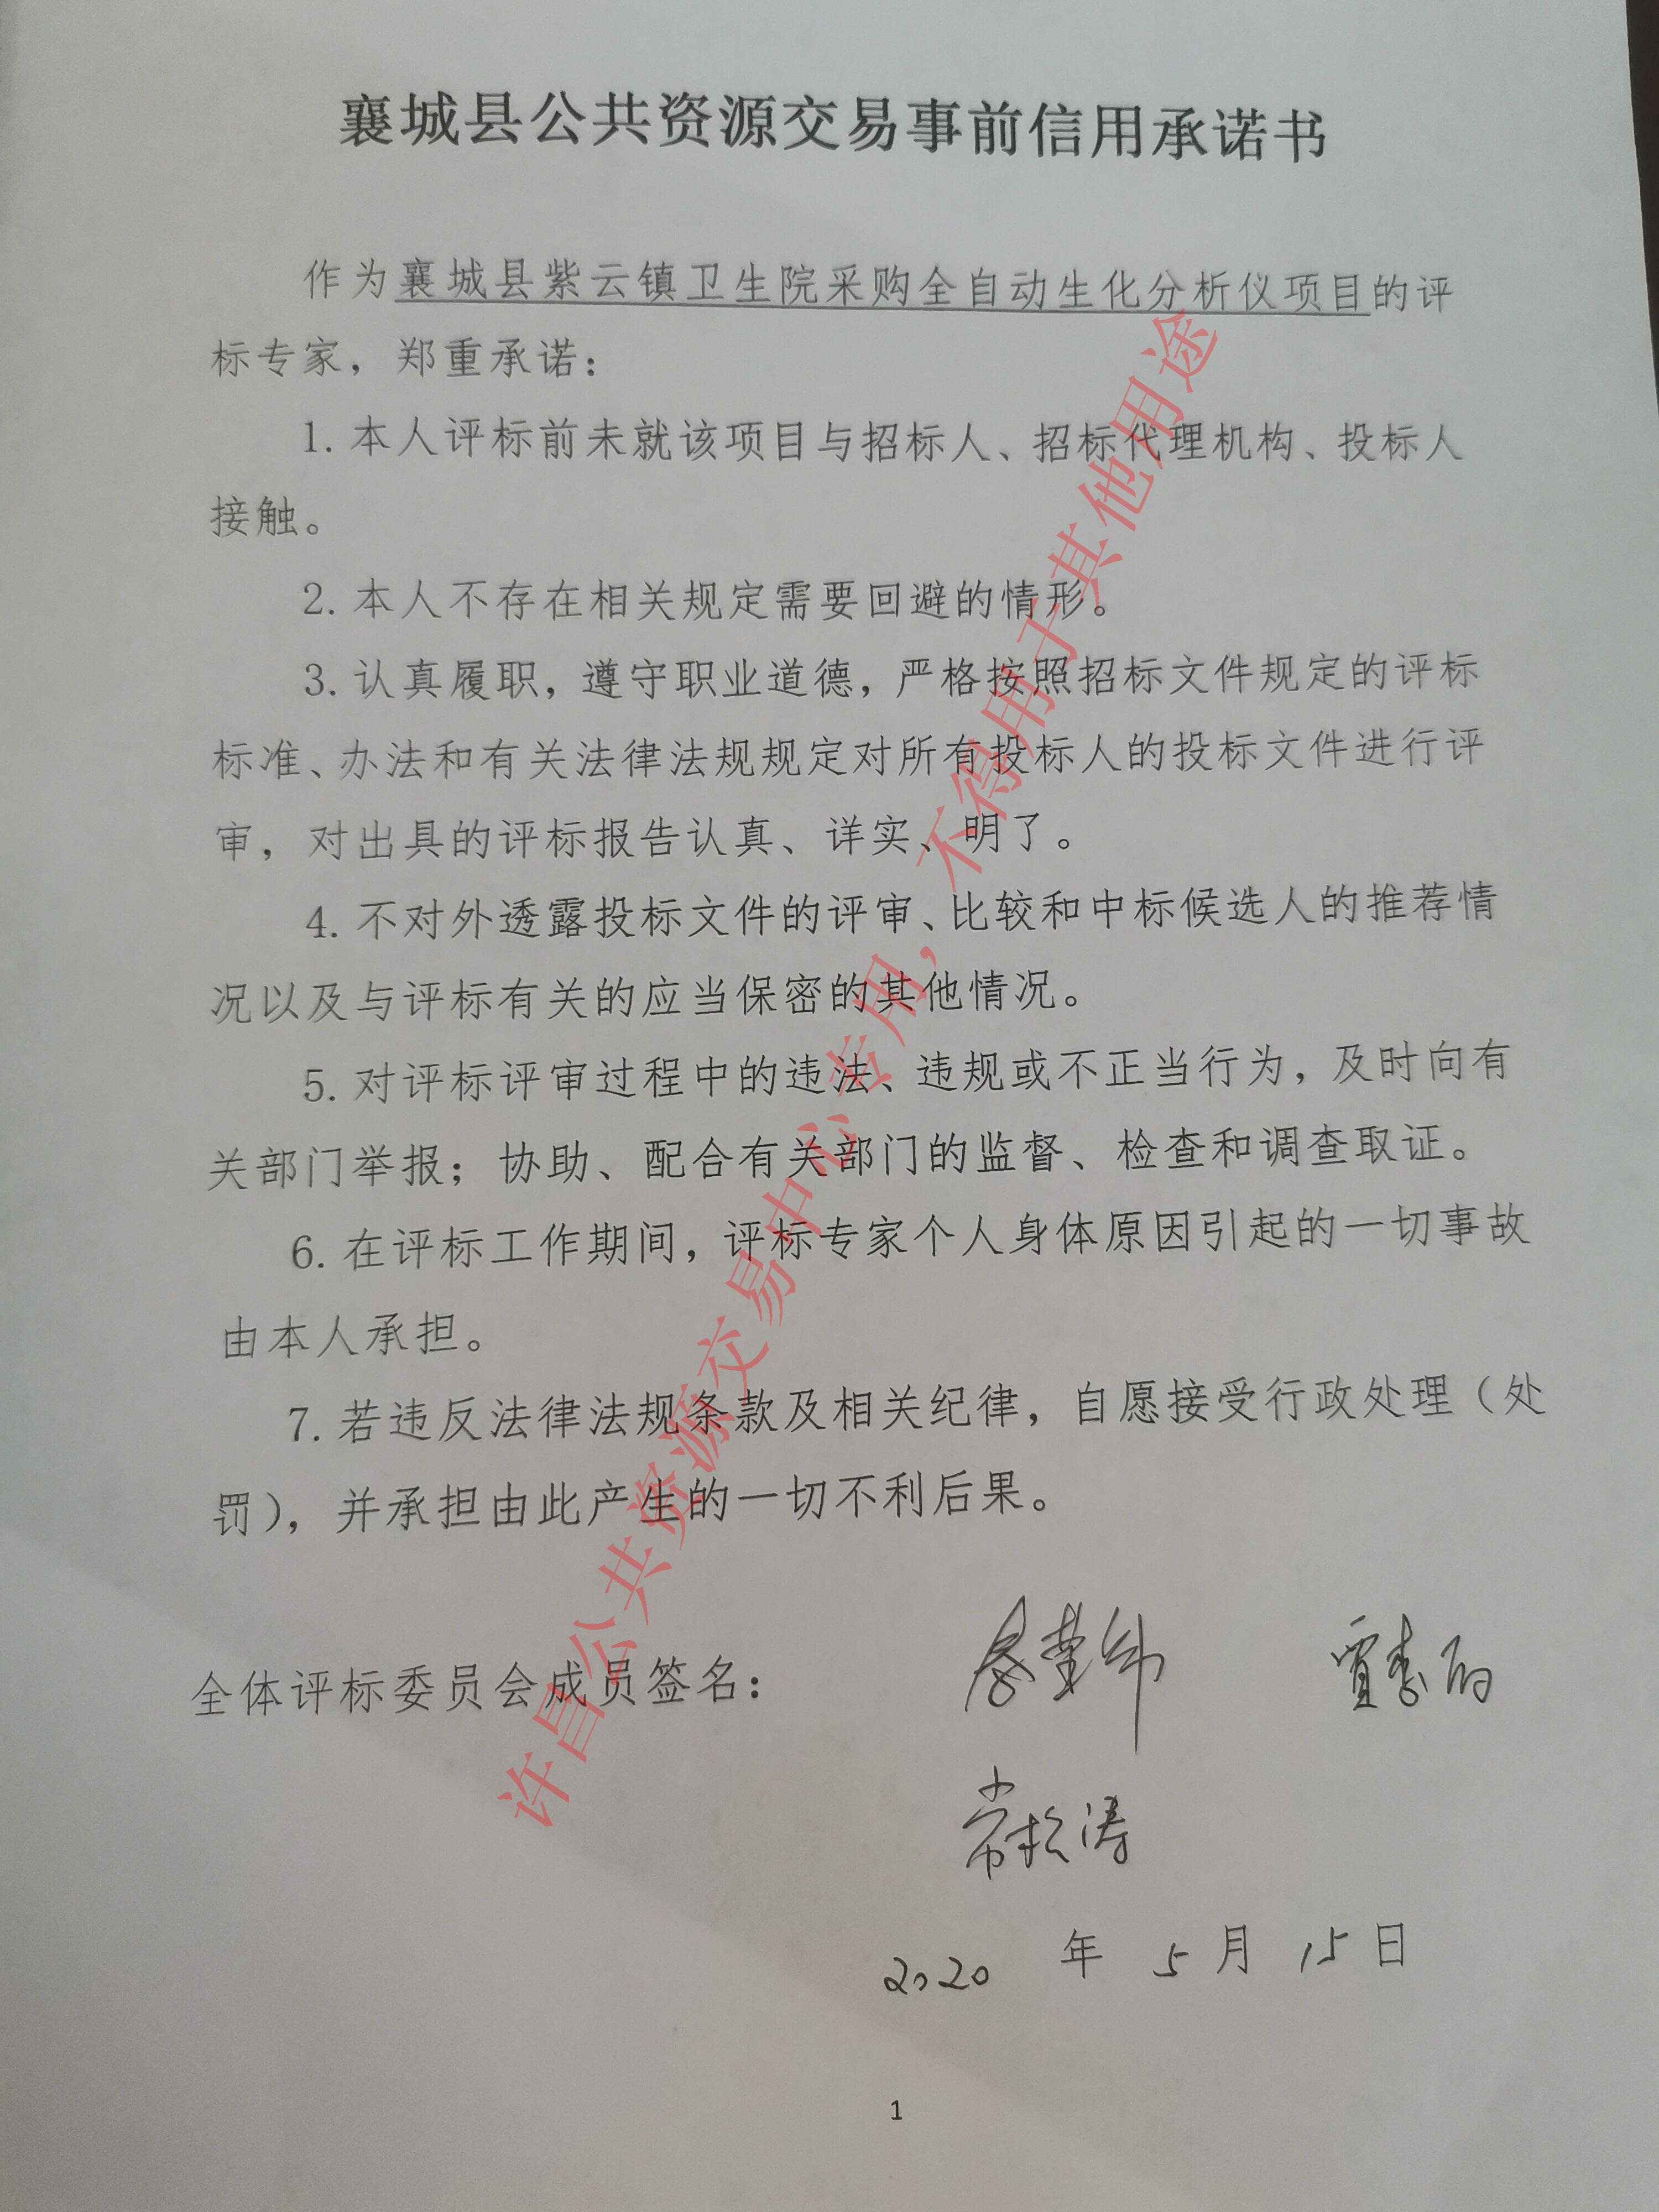 襄城县公共资源交易事前信用承诺书
作为襄城县紫云镇卫生院采购全自动生化分析仪项目的评
标专家，郑重承诺：
1. 本人评标前未就该项目与招标人、招标代理机构、投标人
接触。
2. 本人不存在相关规定需要回避的情形。
3. 认真履职，遵守职业道德，严格按照招标文件规定的评标
标准、办法和有关法律法规规定对所有投标人的投标文件进行评
审，对出具的评标报告认真、详实、明了。
4. 不对外透露投标文件的评审、比较和中标候选人的推荐情
况以及与评标有关的应当保密的其他情况。
5. 对评标评审过程中的违法、违规或不正当行为，及时向有
关部门举报；协助、配合有关部门的监督、检查和调查取证。
6. 在评标工作期间，评标专家个人身体原因引起的一切事故
由本人承担。
7. 若违反法律法规条款及相关纪律，自愿接受行政处理（处
罚），并承担由此产生的一切不利后果。
全体评标委员会成员签名：
常松涛
2020 年 5 月 15 日
1
许昌公共资源交易中心专用，不得用于其他用途